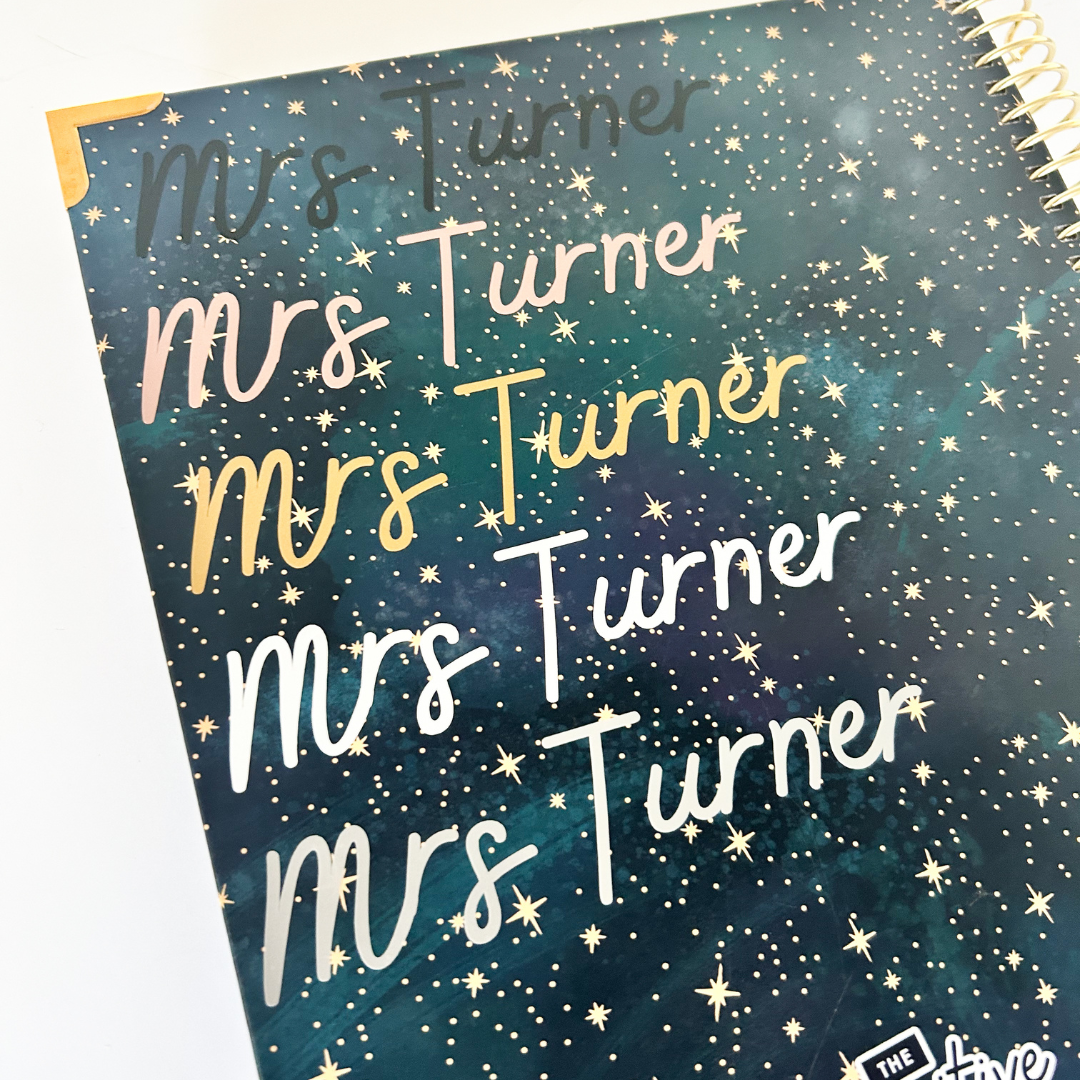 Mrs Turner
Mrs Turner
Mrs Turner
Mrs Turner
Mrs Turner
THE